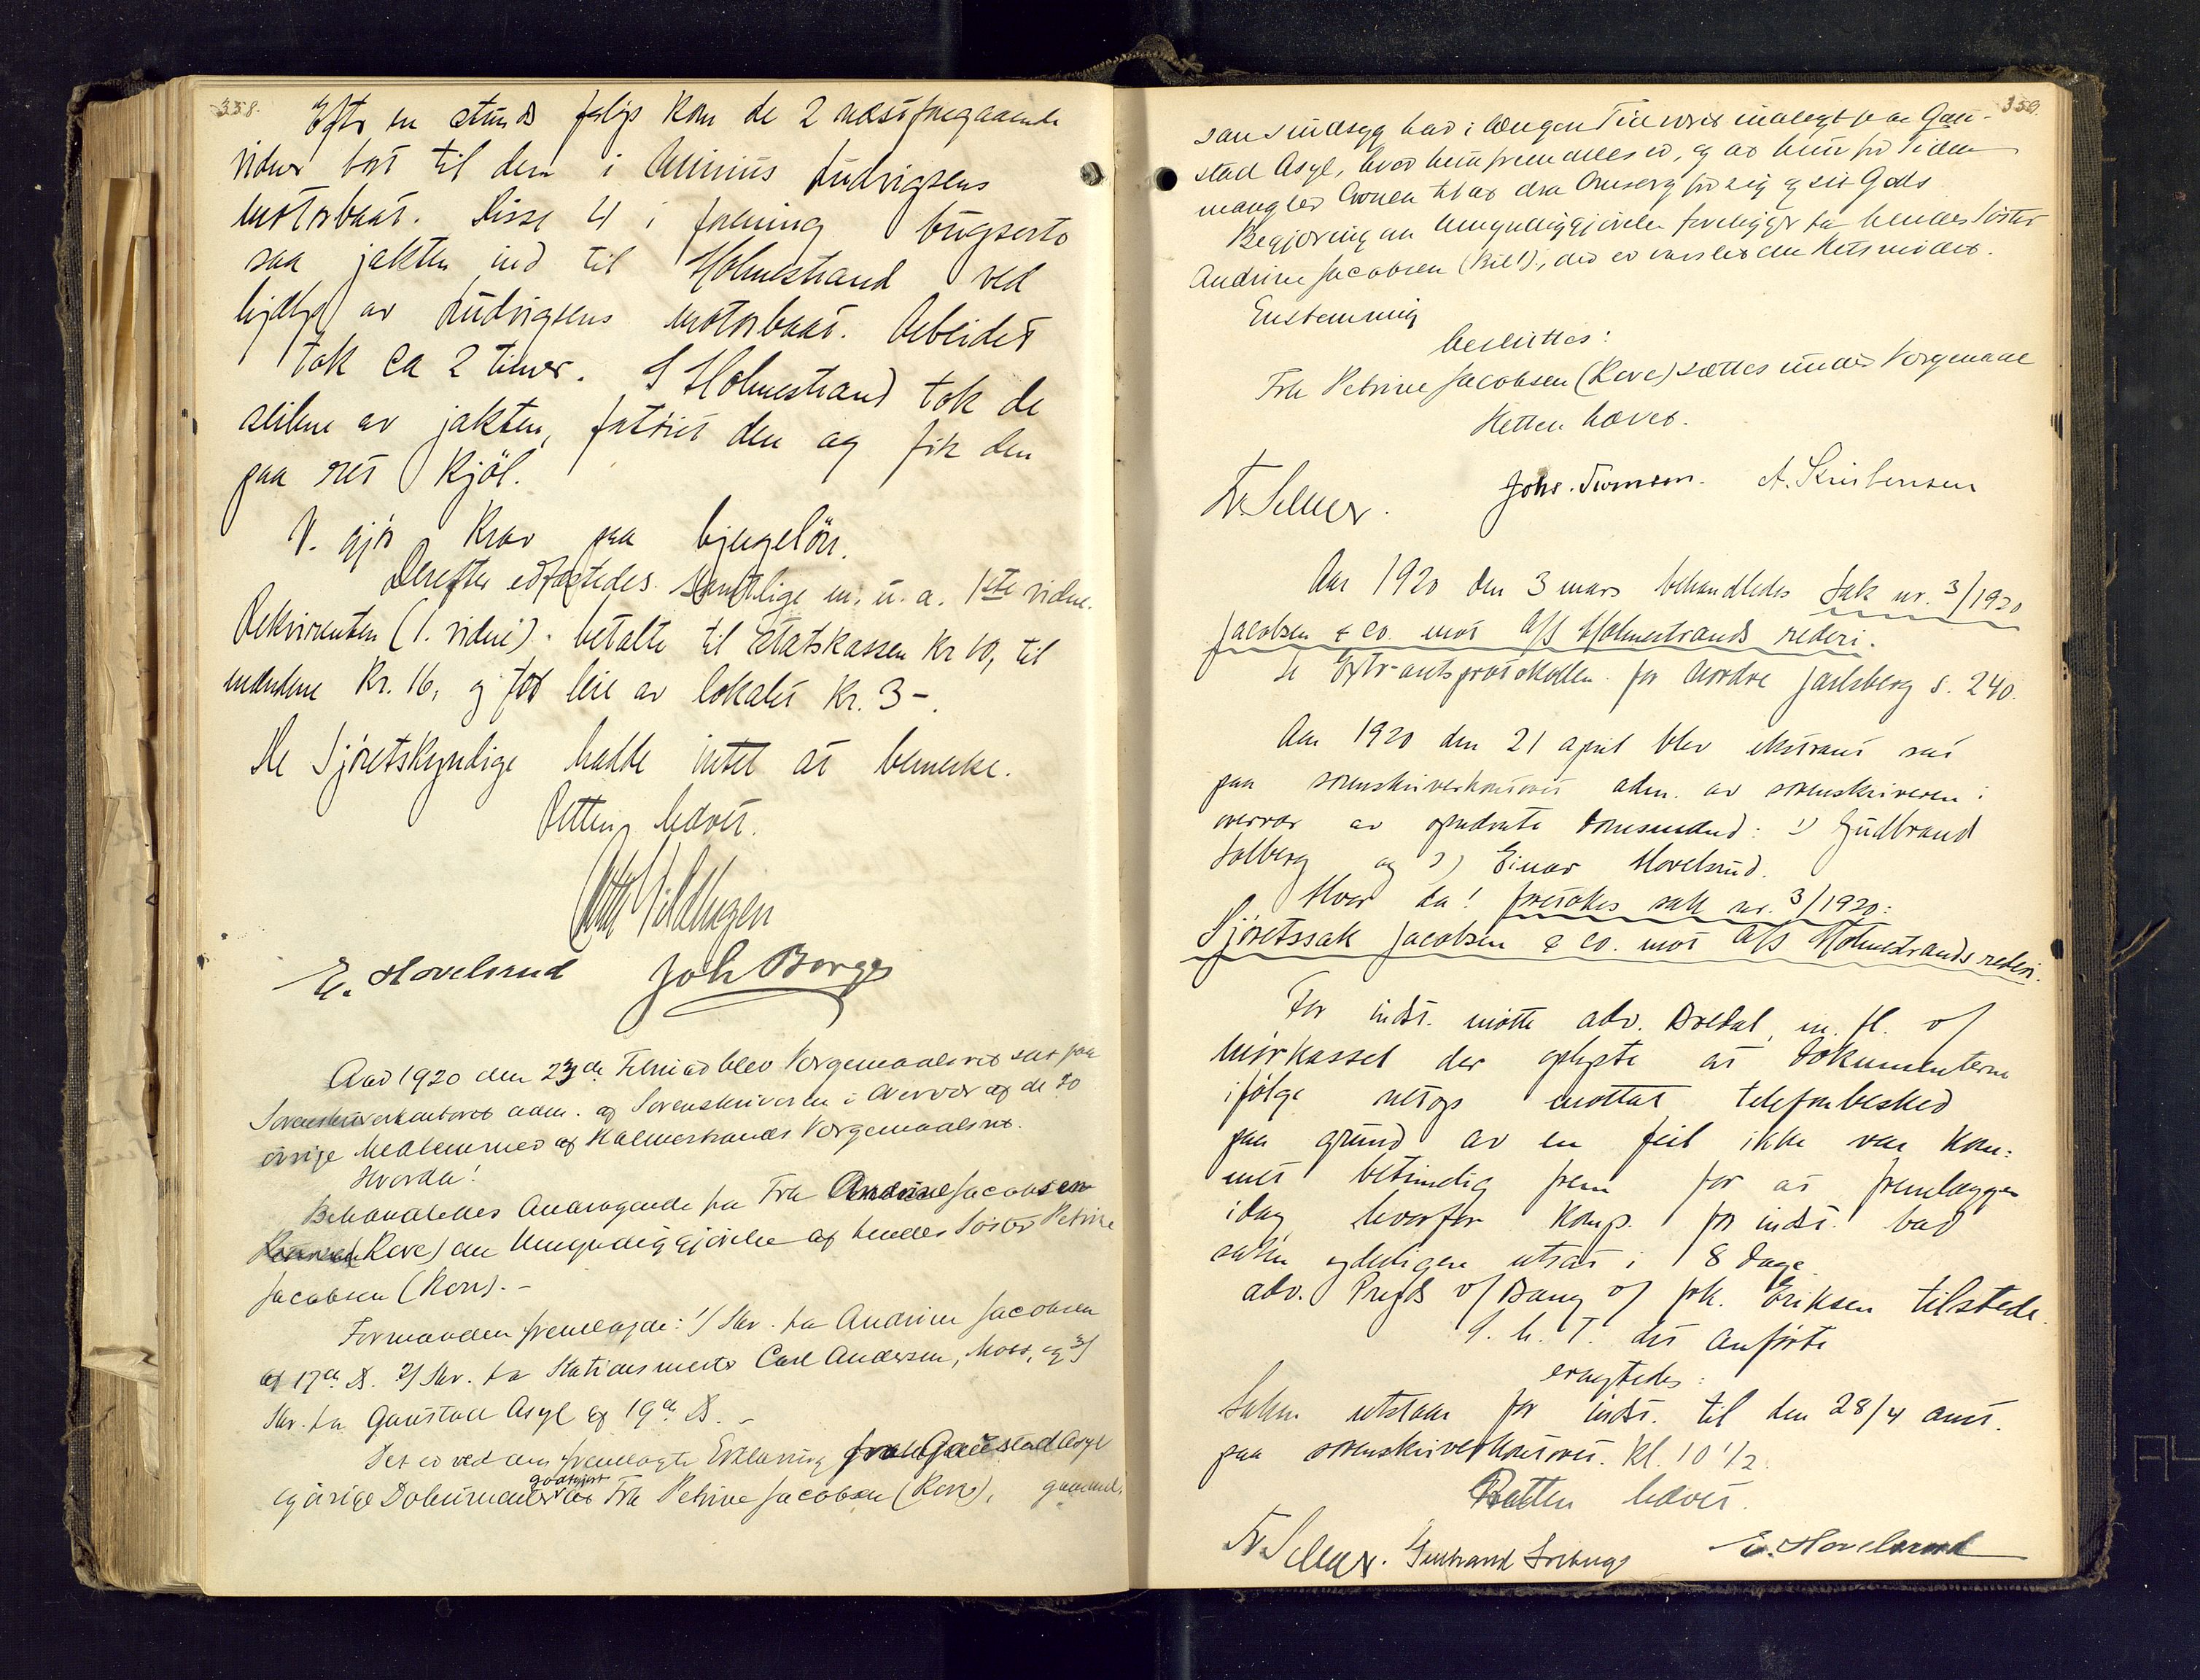 338.
Efter en stunds forløp kom de 2 næstforegaaende
vidner bort til dem i Ludvigsens
motorbaat. Disse 4 i forening bugserte
saa jakten ind til Holmestrand ved
hjælp av Ludvigsens motorbaat. Arbeidet
tok ca 2 timer. I Holmestrand tok de
seilene av jakten, fortøiet den og fik den
paa ret kjøl.
V. gjør krav paa bjergeløn.
Derefter edfæstedes samtlige m. u. a. 1ste vidne.
Rekvirenten (1. vidne) betalte til statskassen kr 10, til
mændene kr. 16, og for leie av lokalet kr. 3-.
De sjøretskyndige hadde intet at bemerke.
Retten hævet.
E. Hovelsrud Joh Borge
Aar 1920 den 23de Februar blev Vergemaalsret sat paa
Sorenskriverkontoret adm. af Sorenskriveren i Overvær af de to
øvrige Medlemmer af Holmestrands Vergemaalsret.
Hvorda!
Behandledes Andragende fra Frk Andrine Jacobsen
(Reve) om Umyndiggjørelse af hendes Søster Petrine
Jacobsen (Reve). -
Formanden fremlagde: 1/ Skr. fra Andrine Jacobsen
af 17de ds. 2/ Skr. fra Stationsmester Carl Andersen, Moss, og 3/
Skr. fra Gaustad Asyl af 19de ds. -
Det er ved den fremlagte Erklæring fra Gaustad Asyl
og øvrige Dokumenter godtgjort at Frk Petrine Jacobsen (Reve),
359.
san sindssyg har i længere Tid været indlagt paa Gau-
stad Asyl, hvor hun fremdeles er, og at hun for Tiden
mangler Evnen til at dra Omsorg for sig og sit Gods
Begjæring om Umyndiggjørelse foreligger fra hendes Søster
Andrine Jacobsen (Bil 1), der er varslet om Retsmødet.
Enstemmig
besluttes:
Frk Petrine Jacobsen (Reve) sættes under Vergemaal
Retten hævet.
Fr. Selmer. Johs. A. Kristensen
Aar 1920 den 3 mars behandledes Sak nr. 3/1920
Jacobsen & Co. mot A/S Holmestrands rederi.
Se Extraretsprotokollen for Nordre Jarlsberg s. 240.
Aar 1920 den 21 april blev ekstraret sat
paa sorenskriverkontoret adm. av sorenskriveren i
overvær av opnævnte domsmænd: 1) Gudbrand
Solberg og 2) Einar Hovelsrud.
Hvor da! foretokes sak nr. 3/1920:
Sjøretssak Jacobsen & Co. mot A/S Holmestrands rederi.
For indst. møtte adv. Bredal, m. fl. v/
Mørkassel der oplyste at dokumenterne
ifølge netop mottat telefonbesked
paa grund av en feil ikke var kom-
met betimelig frem for at fremlægges
idag hvorfor komp. for indst. bad
saken yderligere utsat i 8 dage
adv. v/ Bang v/ fuldm. Eriksen tilstede.
I h. t. det anførte
eragtedes:
Saken utstaar for indst. til den 28/4 anst.
paa sorenskriverkontoret. kl. 10 1/2.
Retten hævet.
Fr. Selmer. Gudbrand Solberg E. Hovelsrud